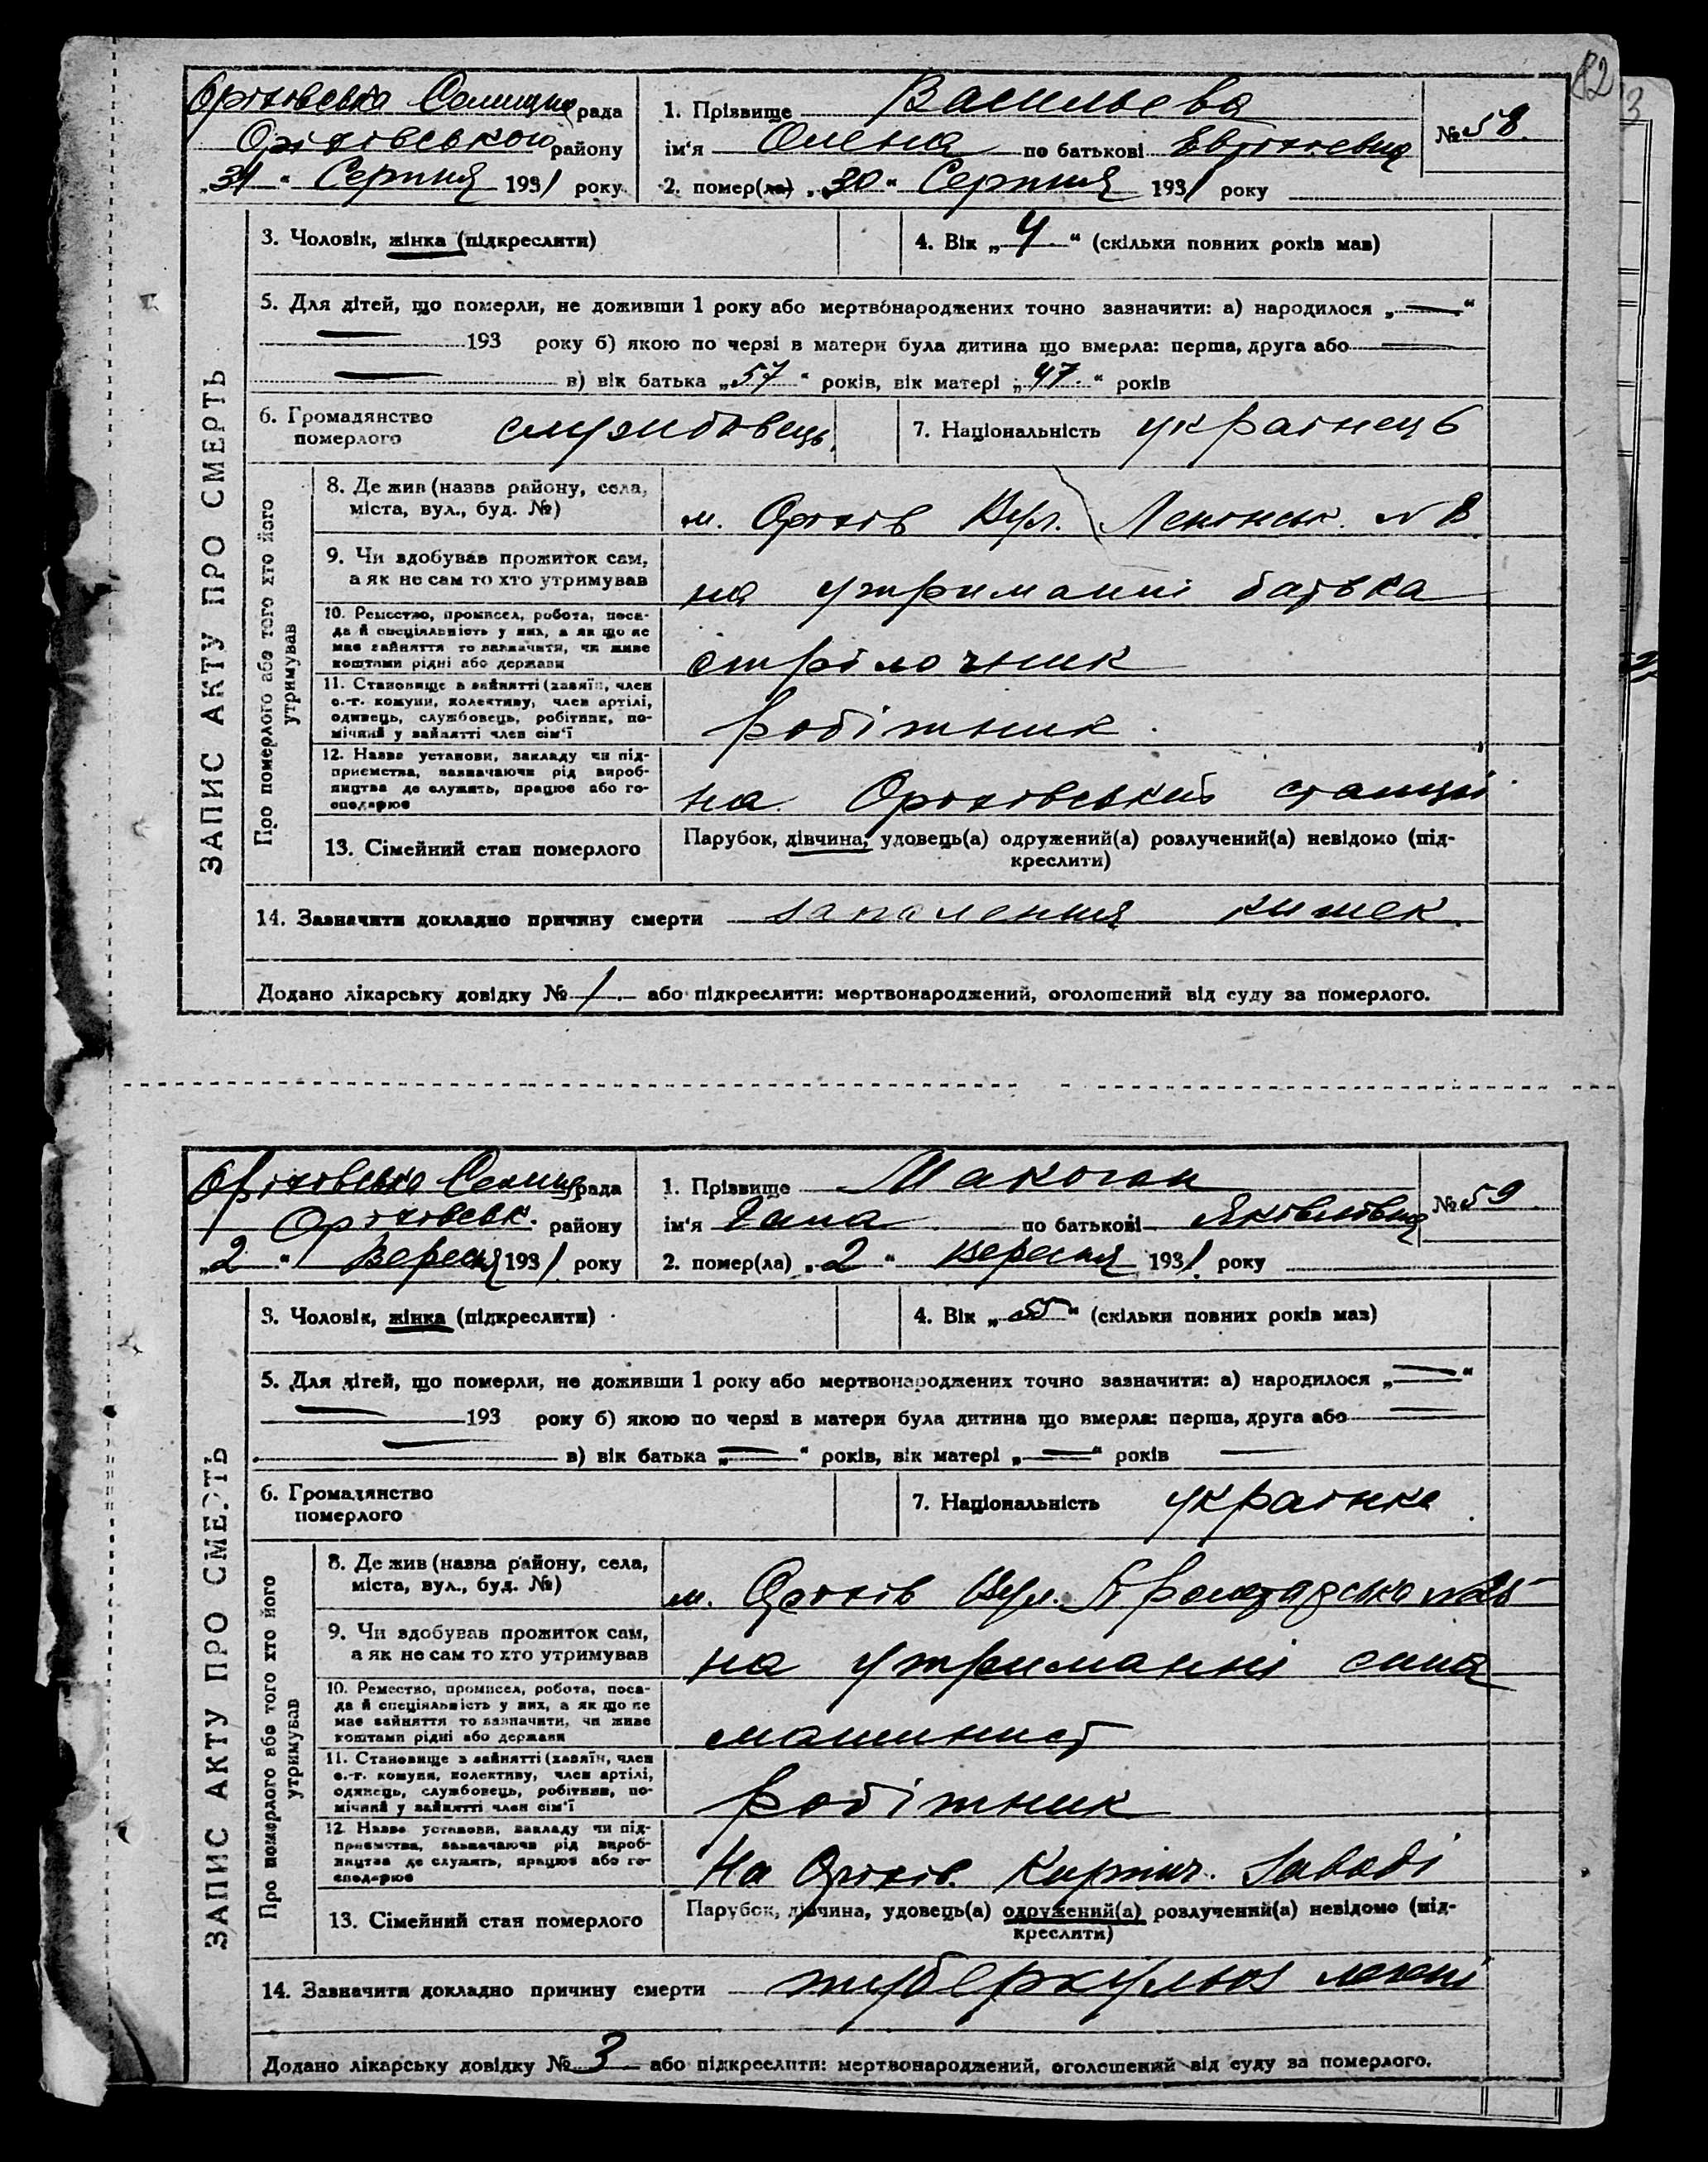 82
3
Оріхівська Селищна рада
Оріхівського району
„31“ Серпня 1931 року
1. Прізвище Васильева
ім'я Олена по батькові
2. помер(ла) „30“ Серпня 1931 року
№ 58.
ЗАПИС АКТУ ПРО СМЕРТЬ
3. Чоловік, жінка (підкреслити)
4. Вік „4“ (скільки повних років мав)
5. Для дітей, що померли, не доживши 1 року або мертвонароджених точно зазначити: а) народилося „—“
— 193 року б) якою по черзі в матери була дитина що вмерла: перша, друга або —
— в) вік батька „57“ років, вік матері „47“ років
6. Громадянство
померлого
службовець
7. Національність українець
Про померлого або того хто його
утримував
8. Де жив (назва району, села,
міста, вул., буд. №)
м. Оріхів Вул. Ленінськ. № 8
9. Чи здобував прожиток сам,
а як не сам то хто утримував
на утриманні батька
10. Ремество, промисел, робота, поса-
да й спеціяльність у них, а як що не
має зайняття то зазначити, чи живе
коштами рідні або держави
стрілочник
11. Становище в зайнятті (хазяїн, член
с.-г. комуни, колективу, член артілі,
одинець, службовець, робітник, по-
мічний у зайнятті член сім'ї
робітник.
12. Назва установи, закладу чи під-
приємства, зазначаючи рід вироб-
ництва де служить, працює або го-
сподарює
на Оріхівський станції
13. Сімейний стан померлого
Парубок, дівчина, удовець(а) одружений(а) розлучений(а) невідомо (під-
креслити)
14. Зазначити докладно причину смерти запалення кишек.
Додано лікарську довідку № 1 або підкреслити: мертвонароджений, оголошений від суду за померлого.
Оріхівська Селищ рада
Оріхівськ. району
„2“ Вересня 1931 року
1. Прізвище Макоган
ім'я Гана по батькові Яківлівна
2. помер(ла) „2“ Вересня 1931 року
№ 59
ЗАПИС АКТУ ПРО СМЕРТЬ
3. Чоловік, жінка (підкреслити)
4. Вік „55“ (скільки повних років мав)
5. Для дітей, що померли, не доживши 1 року або мертвонароджених точно зазначити: а) народилося „—“
— 193 року б) якою по черзі в матери була дитина що вмерла: перша, друга або —
— в) вік батька „—“ років, вік матері „—“ років —
6. Громадянство
померлого
7. Національність українка
Про померлого або того хто його
утримував
8. Де жив (назва району, села,
міста, вул., буд. №)
м. Оріхів Вул.
9. Чи здобував прожиток сам,
а як не сам то хто утримував
на утриманні сина
10. Ремество, промисел, робота, поса-
да й спеціяльність у них, а як що не
має зайняття то зазначити, чи живе
коштами рідні або держави
машинист
11. Становище в зайнятті (хазяїн, член
с.-г. комуни, колективу, член артілі,
одинець, службовець, робітник, по-
мічний у зайнятті член сім'ї
робітник
12. Назва установи, закладу чи під-
приємства, зазначаючи рід вироб-
ництва де служить, працює або го-
сподарює
На Оріхів. Кирпич. Заводі
13. Сімейний стан померлого
Парубок, дівчина, удовець(а) одружений(а) розлучений(а) невідомо (під-
креслити)
14. Зазначити докладно причину смерти туберкульоз легені
Додано лікарську довідку № 3 або підкреслити: мертвонароджений, оголошений від суду за померлого.